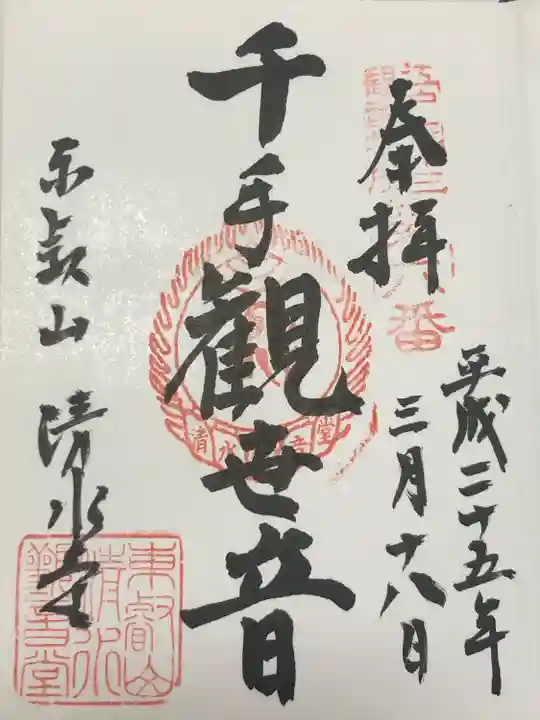 奉拝
平成二十五年
三月十八日
千手観世音
東叡山 清水堂
東叡山
清水
観音堂